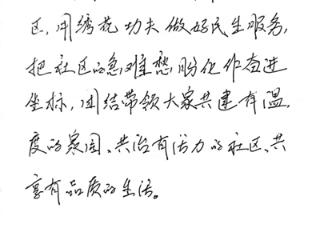 区，用绣花功夫做好民生服务，
把社区的急难愁盼化作奋进
坐标，团结带领大家共建有温
度的家园、共治有活力的社区、共
享有品质的生活。